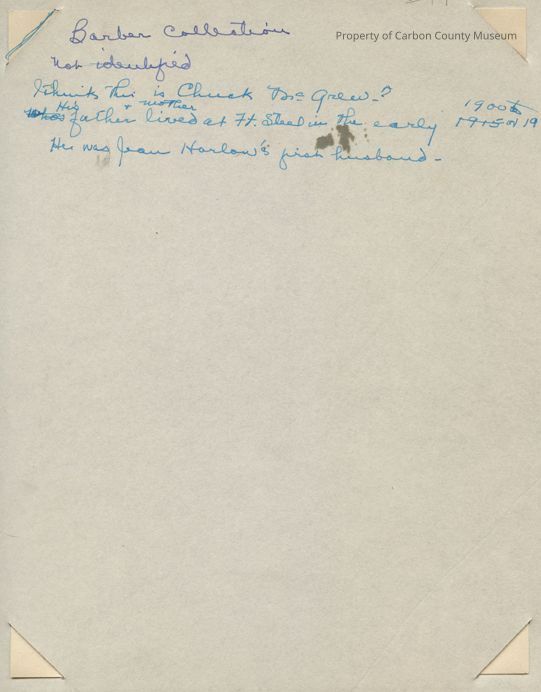 Barber Collection
Property of Carbon County Museum
not identified
I think this is Chuck Mc Grew-?
His + mother 1900s
whos father lived at Ft. Steel in the early 1915 or 19
He was Jean Harlow's first husband-